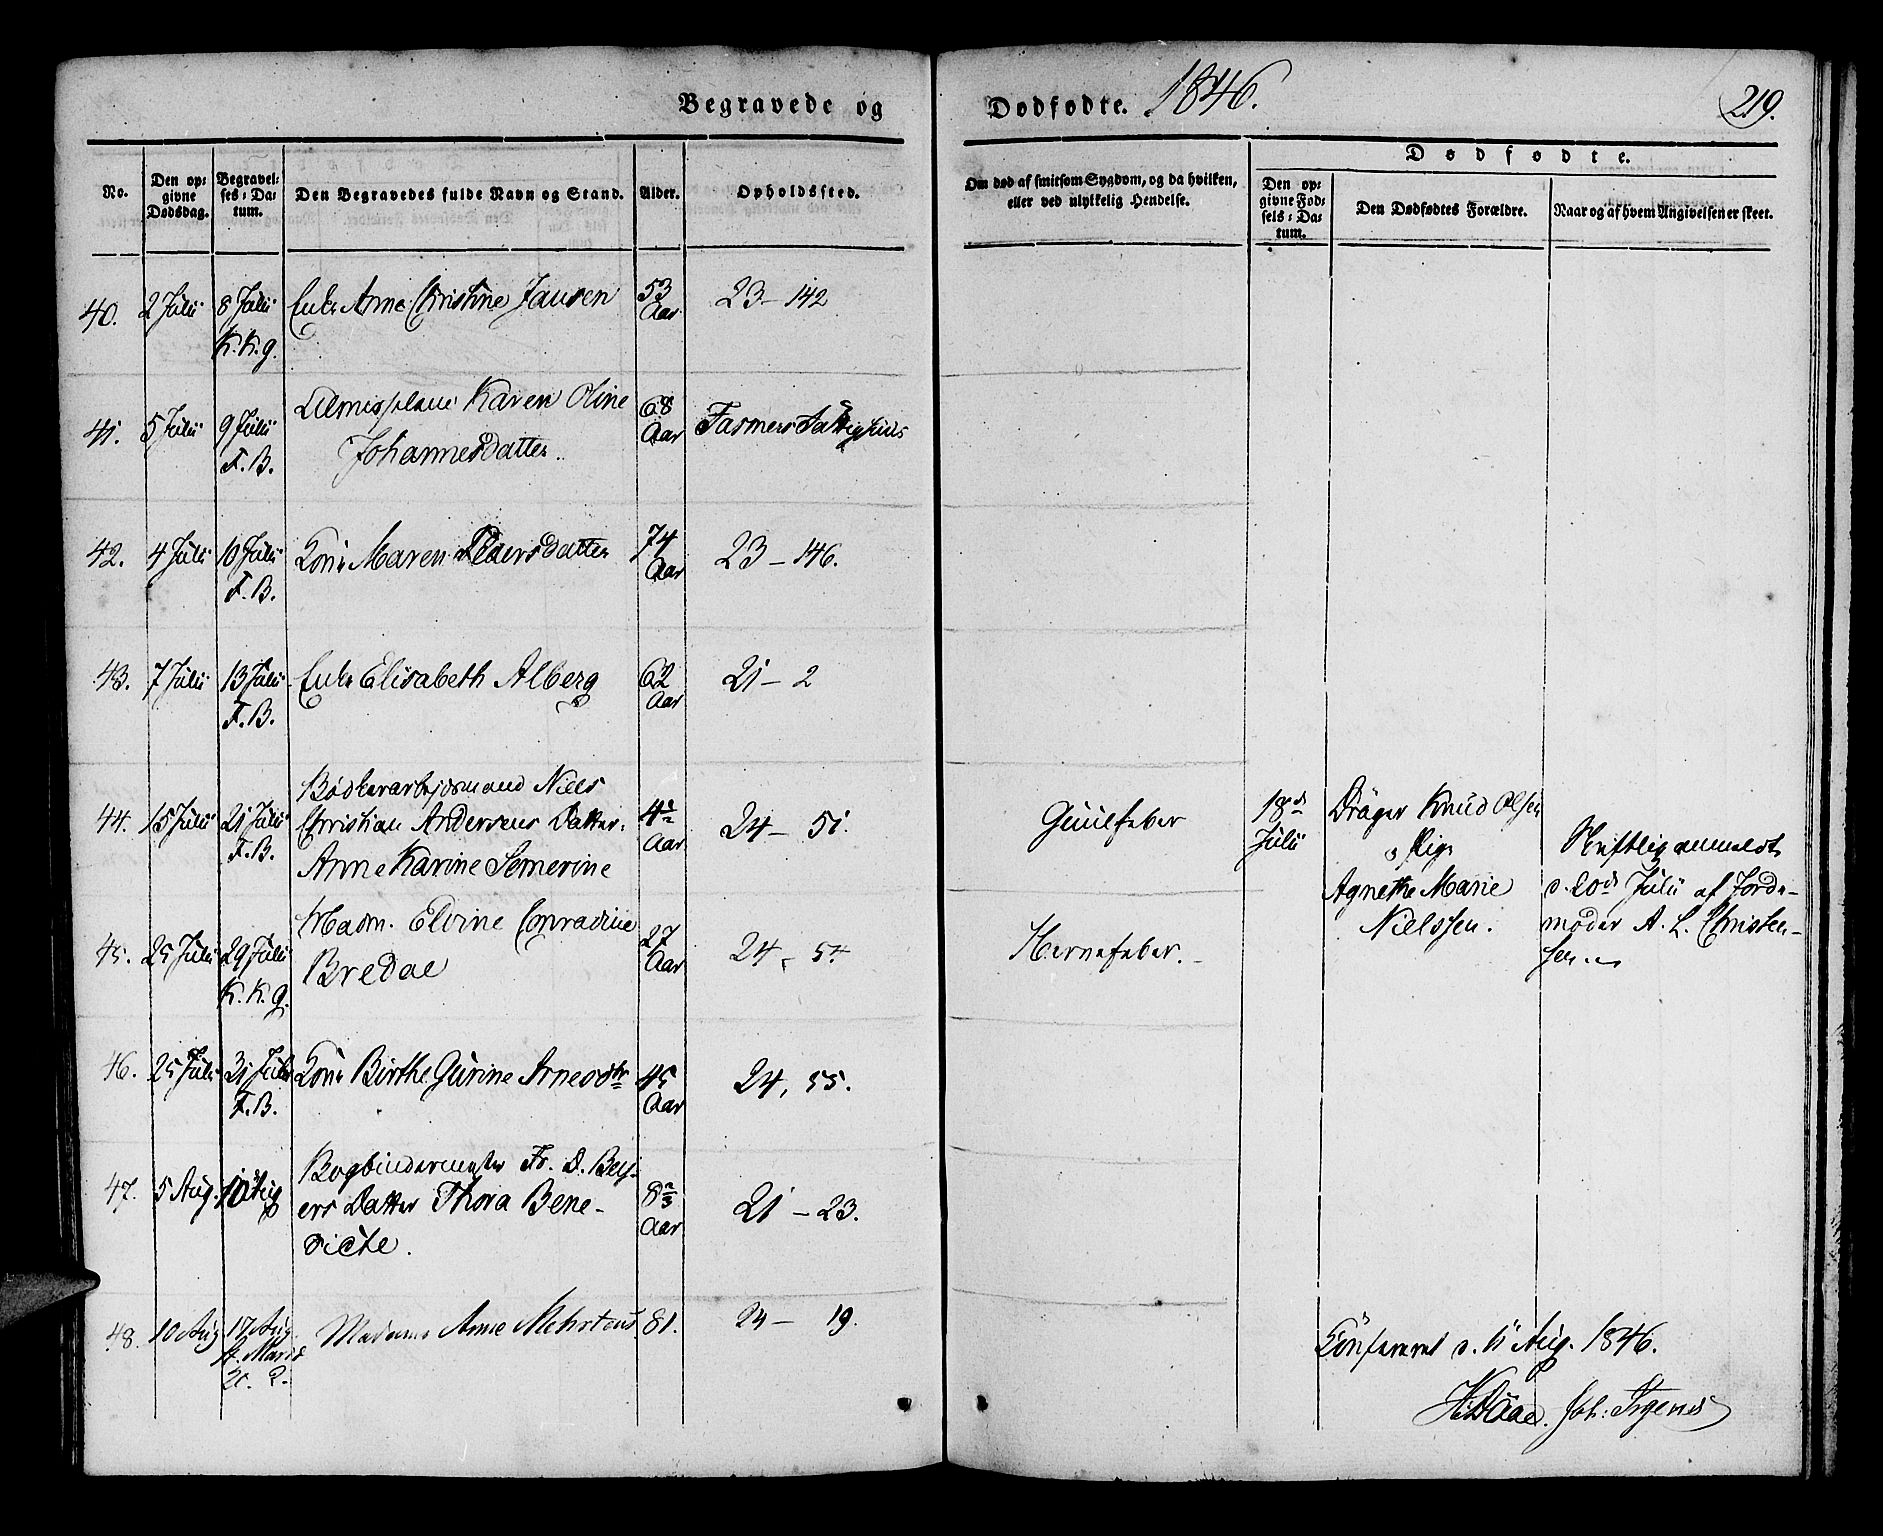 Begravede og Dødfødte. 1846. 219.
No. Den opgivne Dødsdag. Begravelses-Datum. Den Begravedes fulde Navn og Stand. Alder. Opholdssted. Om død af smitsom Sygdom, og da hvilken, eller ved ulykkelig Hendelse.
Dødfødte.
Den opgivne Fødsels-Datum. Den Dødfødtes Forældre. Naar og af hvem Angivelsen er skeet.
40. 2 Julii 8 Julii K. K. g. Enke Anne Christine Jansen 53 Aar 23 - 142
41. 5 Julii 9 Julii F. B. Almisselem Karen Oline Johannesdatter. 68 Aar Fasmers Fattighuus
42. 4 Julii 10 Julii F. B. Kone Maren Pedersdatter 74 Aar 23 - 146.
43. 7 Julii 13 Julii F. B. Enke Elisabeth Alberg 62 Aar 21 - 2
44. 15 Julii 21 Julii F. B. Bødkerarbejdsmand Niels Christian Andersens Datter Anne Karine Semerine Aar 24 - 51. Guulfeber
18de Julii Dräger Knud Olsen og Pige Agnethe Marie Nielssen. Skriftlig anmeldt d. 20de Julii af Jordemoder A. L. Christensen
45. 25 Julii 29 Julii K. K. g. Madm. Elvine Conradine Bredal 27 Aar 24, 54 Nervefeber.
46. 25 Julii 31 Julii F. B. Kone Birthe Gurine Arnesdtr 45 Aar 24, 55.
47. 5 Aug. 10 Aug Bogbindermester Fr. D. Beyers Datter Thora Benedicte. 8 2/3 Aar 21 - 23.
48. 10 Aug 17 Aug. St. Marie Madame Anne Mehrtens 81. 24 - 19.
Confereret d. 11 Aug. 1846.
H. Daae. Joh: Irgens